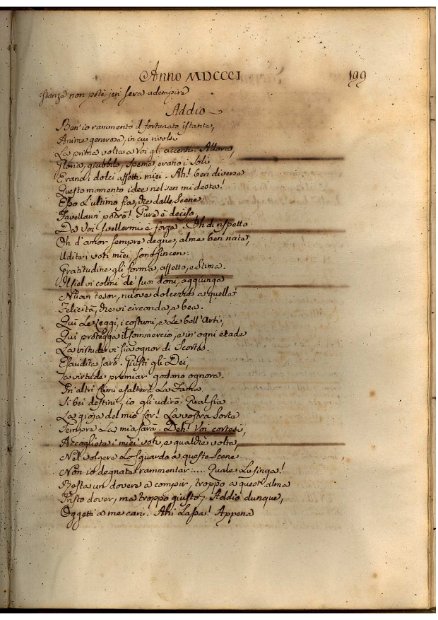 Anno MDCCCI 199
stanza non potè jeri sera adempire
Addio
Ben io rammento il fortunato istante,
Anime generose, in cui rivolsi
La prima volta a Voi gli accenti. Allora,
Gloria, giubbilo, speme erano i Soli,
E tardi dolci affetti miei. Ah! ben diverso
Questo momento idee nel sen mi desta.
E l'ultimo fia, che dalle Scene
Favellarvi potrò! Pure è deciso,
Da Voi svellermi è forza. Oh di rispetto
Oh d'amor sempre degne, alme ben nate,
Uditei voti miei, son sinceri.
Gratitudine gli forma, affetto, e Stima.
Il Ciel vi colmi de' suoi doni, aggiunga
Nuovi tesori, nuove dolcezze a quella
Felicità, che vi circonda, e bea.
Qui le leggi, i costumi, e le bell'Arti,
Qui protegga il commercio, e in ogni etade
La virtude vi sia ognor di Scorta.
Esaudita sarò. Giusti gli Dei,
La virtude premiar godono ognora.
In altri suoi esalterà La Fama
Sì bei destini, io gli udirò. Qual fia
La gioja del mio Cor! La vostra Sorte
Sempre La mia sarà. Deh! Voi cortesi
Accogliete i miei voti, e qualche volta
Nel volgere Lo Sguardo a queste Scene
Non isdegnate rammentar.... Quale Lusinga!
Resta un dovere a compir, troppo a quest'alma
Giusto dover, ma troppo giusto, Addio dunque,
Oggetti a me cari! Ahi Lassa! Appena